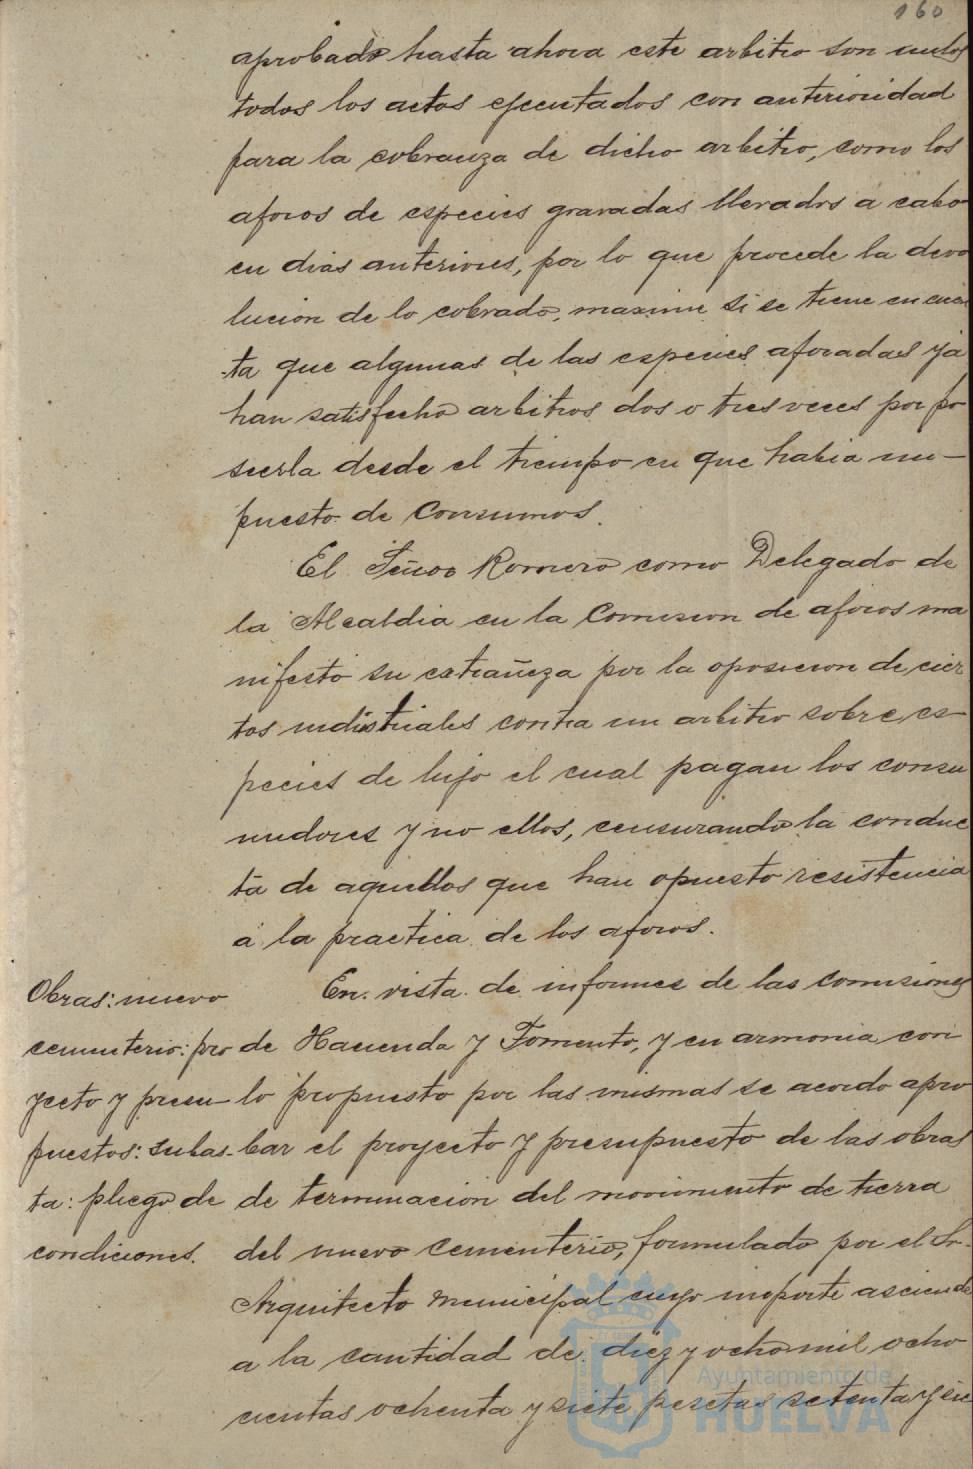 160
aprobado hasta ahora este arbitrio son nulos
todos los actos ejecutados con anterioridad
para la cobranza de dicho arbitrio, como los
aforos de especies gravadas llevados a cabo
en dias anteriores, por lo que procede la devo
lucion de lo cobrado, maxime si se tiene en cuen
ta que algunas de las especies aforadas yá
han satisfecho arbitrios dos o tres veces por po
seerla desde el tiempo en que habia im-
puesto de Consumos.
El Señor Romero como Delegado de
la Alcaldia en la Comision de aforos ma
nifestó su extrañeza por la oposicion de cier
tos industriales contra un arbitrio sobre es-
pecies de lujo el cual pagan los consu
midores y no ellos, censurando la conduc
ta de aquellos que han opuesto resistencia
á la practica de los aforos.
Obras: nuevo
cementerio: pro
yecto y presu-
puestos: subas-
ta: pliego de
condiciones.
En vista de informes de las comisiones
de Hacienda y Fomento, y en armonia con
lo propuesto por las mismas se acordo apro
bar el proyecto y presupuesto de las obras
de terminacion del movimiento de tierra
del nuevo cementerio, formulado por el Sr.
Arquitecto Municipal cuyo importe asciende
a la cantidad de diez y ocho mil ocho
cientas ochenta y siete pesetas setenta y cin
Ayuntamiento de
HUELVA